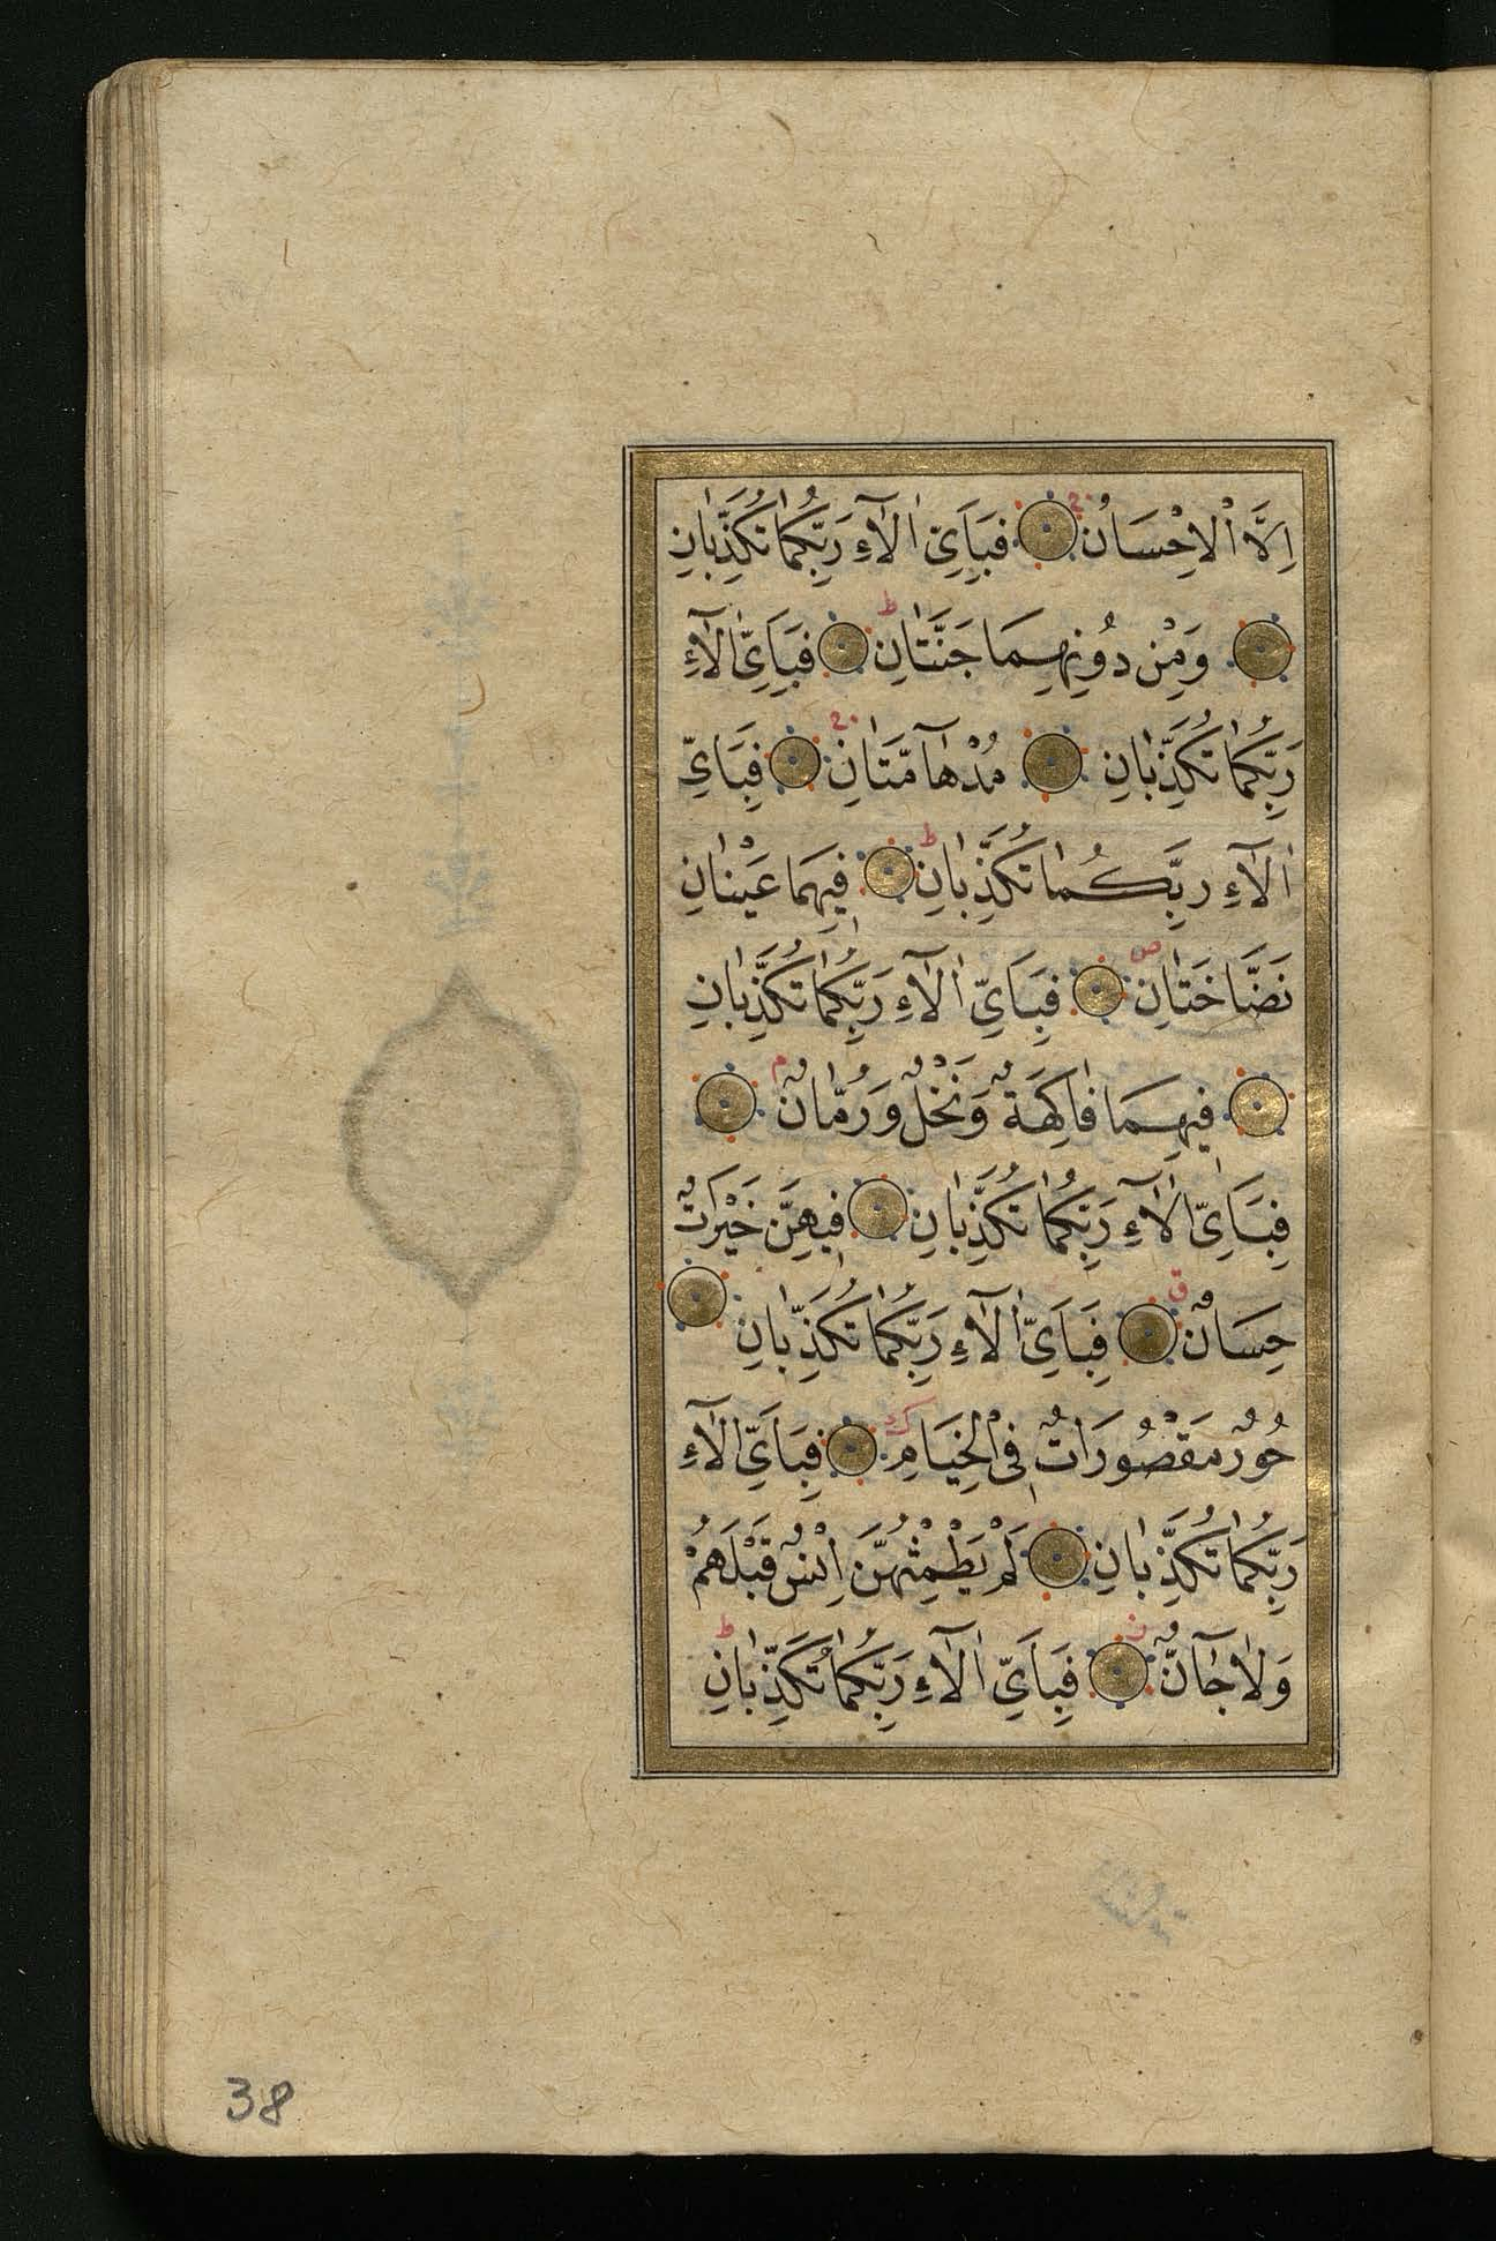 اِلَّا الْاِحْسَانُ فَبِاَيِّ اٰلَآءِ رَبِّكُمَا تُكَذِّبَانِ
وَمِنْ دُونِهِمَا جَنَّتَانِ فَبِاَيِّ اٰلَآءِ
رَبِّكُمَا تُكَذِّبَانِ مُدْهَآمَّتَانِ فَبِاَيِّ
اٰلَآءِ رَبِّكُمَا تُكَذِّبَانِ فِيهِمَا عَيْنَانِ
نَضَّاخَتَانِ فَبِاَيِّ اٰلَآءِ رَبِّكُمَا تُكَذِّبَانِ
فِيهِمَا فَاكِهَةٌ وَنَخْلٌ وَرُمَّانٌ
فَبِاَيِّ اٰلَآءِ رَبِّكُمَا تُكَذِّبَانِ فِيهِنَّ خَيْرَاتٌ
حِسَانٌ فَبِاَيِّ اٰلَآءِ رَبِّكُمَا تُكَذِّبَانِ
حُورٌ مَقْصُورَاتٌ فِي الْخِيَامِ فَبِاَيِّ اٰلَآءِ
رَبِّكُمَا تُكَذِّبَانِ لَمْ يَطْمِثْهُنَّ اِنْسٌ قَبْلَهُمْ
وَلَا جَآنٌّ فَبِاَيِّ اٰلَآءِ رَبِّكُمَا تُكَذِّبَانِ
38